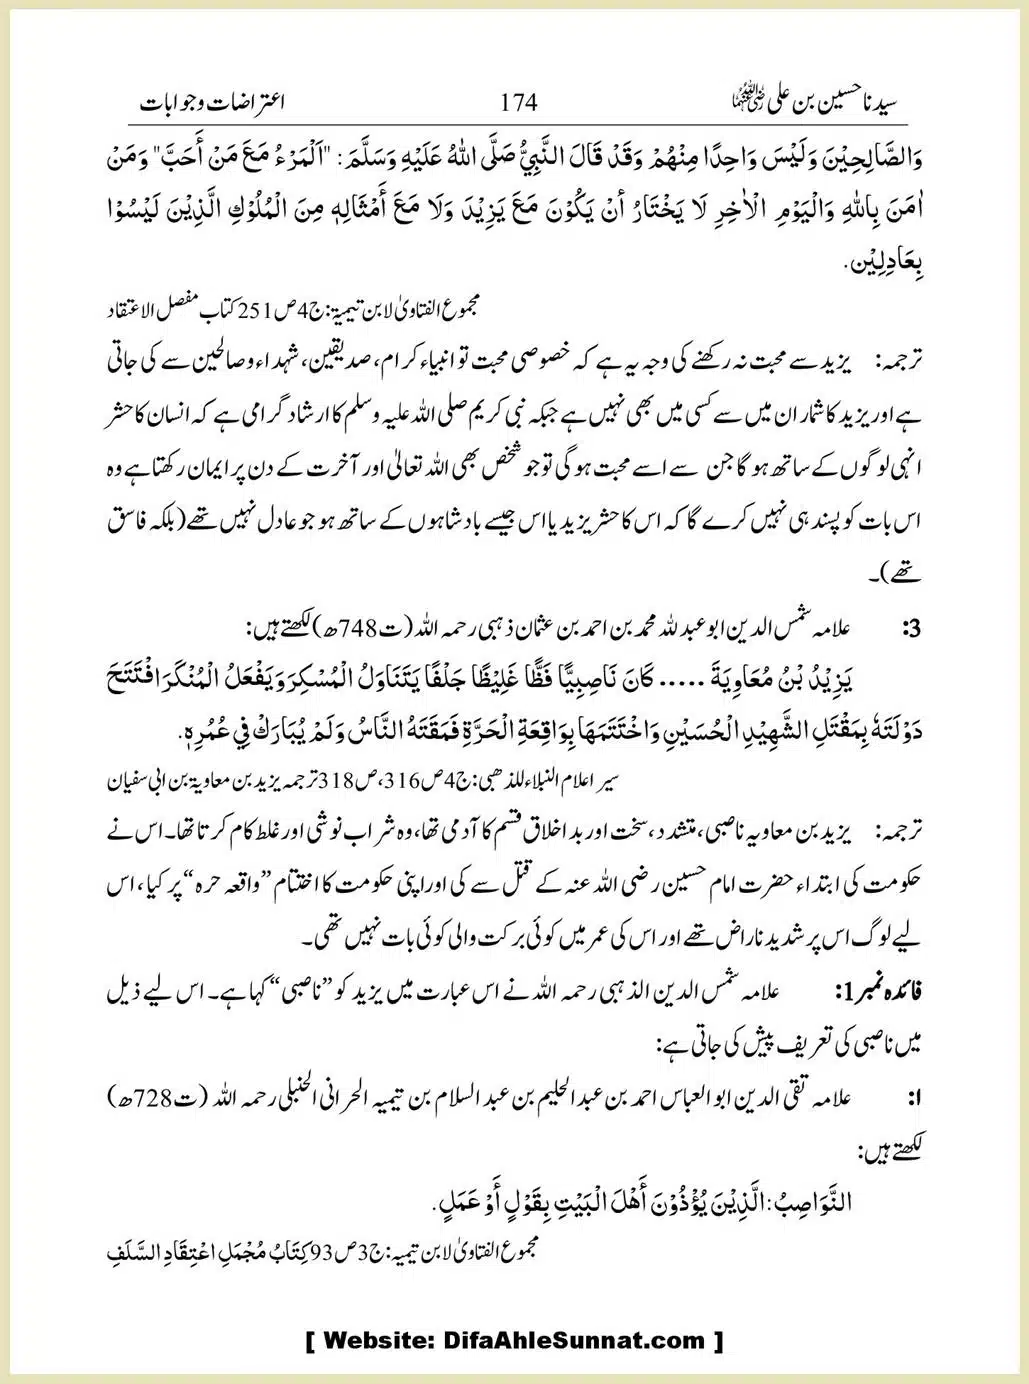 سیدنا حسین بن علی رضی اللہ عنہما 174 اعتراضات و جوابات
وَالصَّالِحِيْنَ وَلَيْسَ وَاحِدًا مِنْهُمْ وَقَدْ قَالَ النَّبِيُّ صَلَّى اللهُ عَلَيْهِ وَسَلَّمَ: "اَلْمَرْءُ مَعَ مَنْ أَحَبَّ" وَمَنْ
اٰمَنَ بِاللهِ وَالْيَوْمِ الْاٰخِرِ لَا يَخْتَارُ أَنْ يَكُوْنَ مَعَ يَزِيْدَ وَلَا مَعَ أَمْثَالِهٖ مِنَ الْمُلُوْكِ الَّذِيْنَ لَيْسُوْا
بِعَادِلِيْن.
مجموع الفتاویٰ لابن تیمیۃ: ج4ص251 کتاب مفصل الاعتقاد
ترجمہ: یزید سے محبت نہ رکھنے کی وجہ یہ ہے کہ خصوصی محبت تو انبیاء کرام، صدیقین، شہداء و صالحین سے کی جاتی
ہے اور یزید کا شمار ان میں سے کسی میں بھی نہیں ہے جبکہ نبی کریم صلی اللہ علیہ وسلم کا ارشاد گرامی ہے کہ انسان کا حشر
انہی لوگوں کے ساتھ ہو گا جن سے اسے محبت ہو گی تو جو شخص بھی اللہ تعالیٰ اور آخرت کے دن پر ایمان رکھتا ہے وہ
اس بات کو پسند ہی نہیں کرے گا کہ اس کا حشر یزید یا اس جیسے بادشاہوں کے ساتھ ہو جو عادل نہیں تھے (بلکہ فاسق
تھے)۔
3: علامہ شمس الدین ابو عبد للہ محمد بن احمد بن عثمان ذہبی رحمہ اللہ (ت748ھ) لکھتے ہیں:
يَزِيْدُ بْنُ مُعَاوِيَةَ ..... كَانَ نَاصِبِيًّا فَظًّا غَلِيْظًا جَلْفًا يَتَنَاوَلُ الْمُسْكِرَ وَيَفْعَلُ الْمُنْكَرَ افْتَتَحَ
دَوْلَتَهٗ بِمَقْتَلِ الشَّهِيْدِ الْحُسَيْنِ وَاخْتَتَمَهَا بِوَاقِعَةِ الْحَرَّةِ فَمَقَتَهُ النَّاسُ وَلَمْ يُبَارَكْ فِي عُمُرِهٖ.
سیر اعلام النبلاء للذھبی: ج4ص316، ص318 ترجمہ یزید بن معاویۃ بن ابی سفیان
ترجمہ: یزید بن معاویہ ناصبی، متشدد، سخت اور بد اخلاق قسم کا آدمی تھا، وہ شراب نوشی اور غلط کام کرتا تھا۔ اس نے
حکومت کی ابتداء حضرت امام حسین رضی اللہ عنہ کے قتل سے کی اور اپنی حکومت کا اختتام ”واقعہ حرہ“ پر کیا، اس
لیے لوگ اس پر شدید ناراض تھے اور اس کی عمر میں کوئی برکت والی کوئی بات نہیں تھی۔
فائدہ نمبر1: علامہ شمس الدین الذہبی رحمہ اللہ نے اس عبارت میں یزید کو ”ناصبی“ کہا ہے۔ اس لیے ذیل
میں ناصبی کی تعریف پیش کی جاتی ہے:
ا: علامہ تقی الدین ابو العباس احمد بن عبد الحلیم بن عبد السلام بن تیمیہ الحرانی الحنبلی رحمہ اللہ (ت728ھ)
لکھتے ہیں:
النَّوَاصِبُ: الَّذِيْنَ يُؤْذُوْنَ أَهْلَ الْبَيْتِ بِقَوْلٍ أَوْ عَمَلٍ.
مجموع الفتاویٰ لابن تیمیہ: ج3ص93 كِتَابُ مُجْمَلِ اعْتِقَادِ السَّلَفِ
[ Website: DifaAhleSunnat.com ]